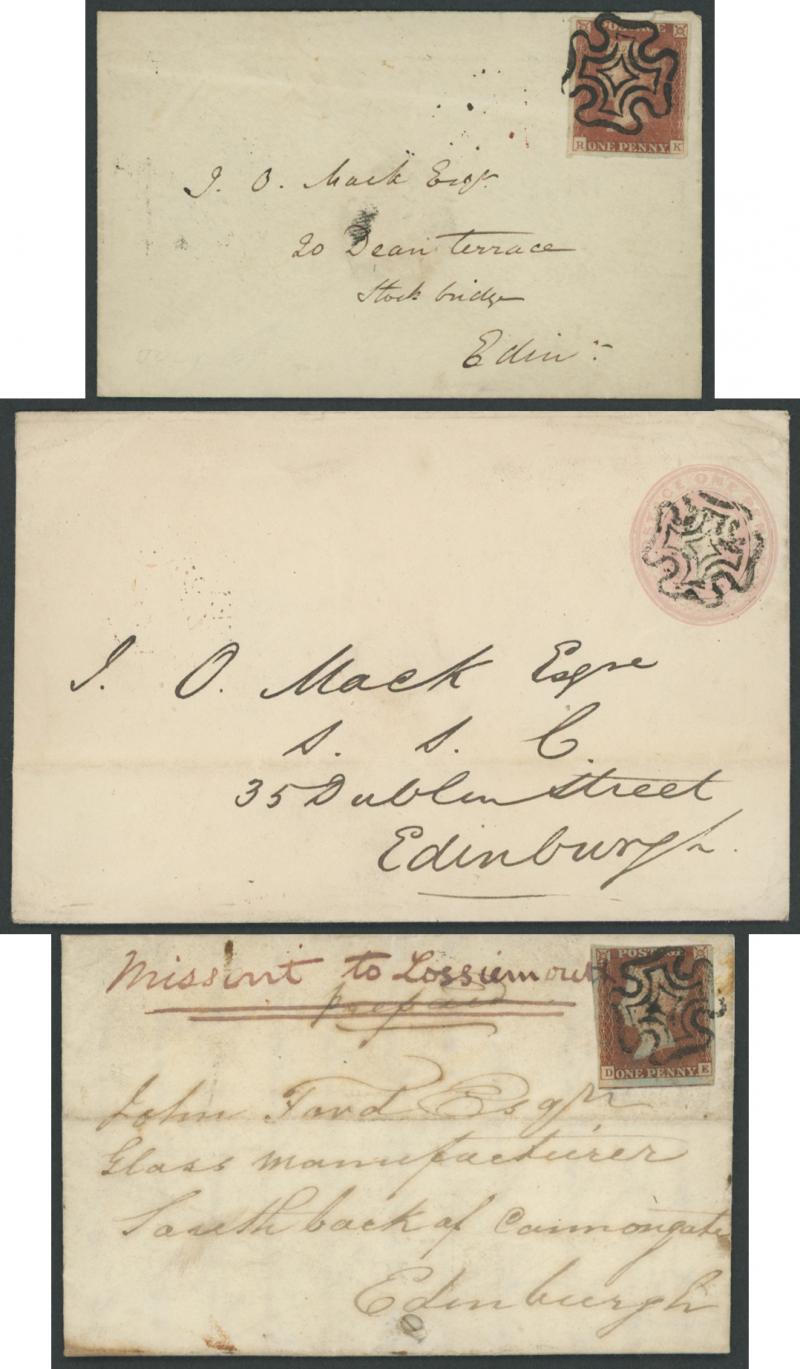 POSTAGE
R ONE PENNY K
J. O. Mack Esqr
20 Dean terrace
Stock bridge
Edinr
POSTAGE ONE PENNY
J. O. Mack Esqre
S. S. C.
35 Dublin Street
Edinburgh.
Missent to Lossiemouth
Prepaid
POSTAGE
D ONE PENNY E
John Ford Esqr
Glass Manufacturer
South back of Cannongate
Edinburgh